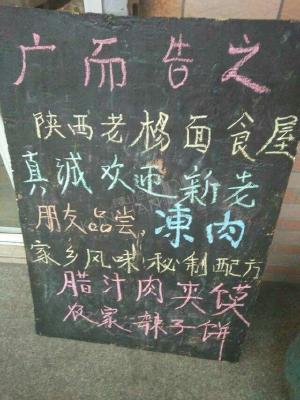 广而告之
陕西老杨面食屋
真诚欢迎新老
朋友品尝,凍肉
家乡风味秘制配方
腊汁肉夹馍
农家辣子饼